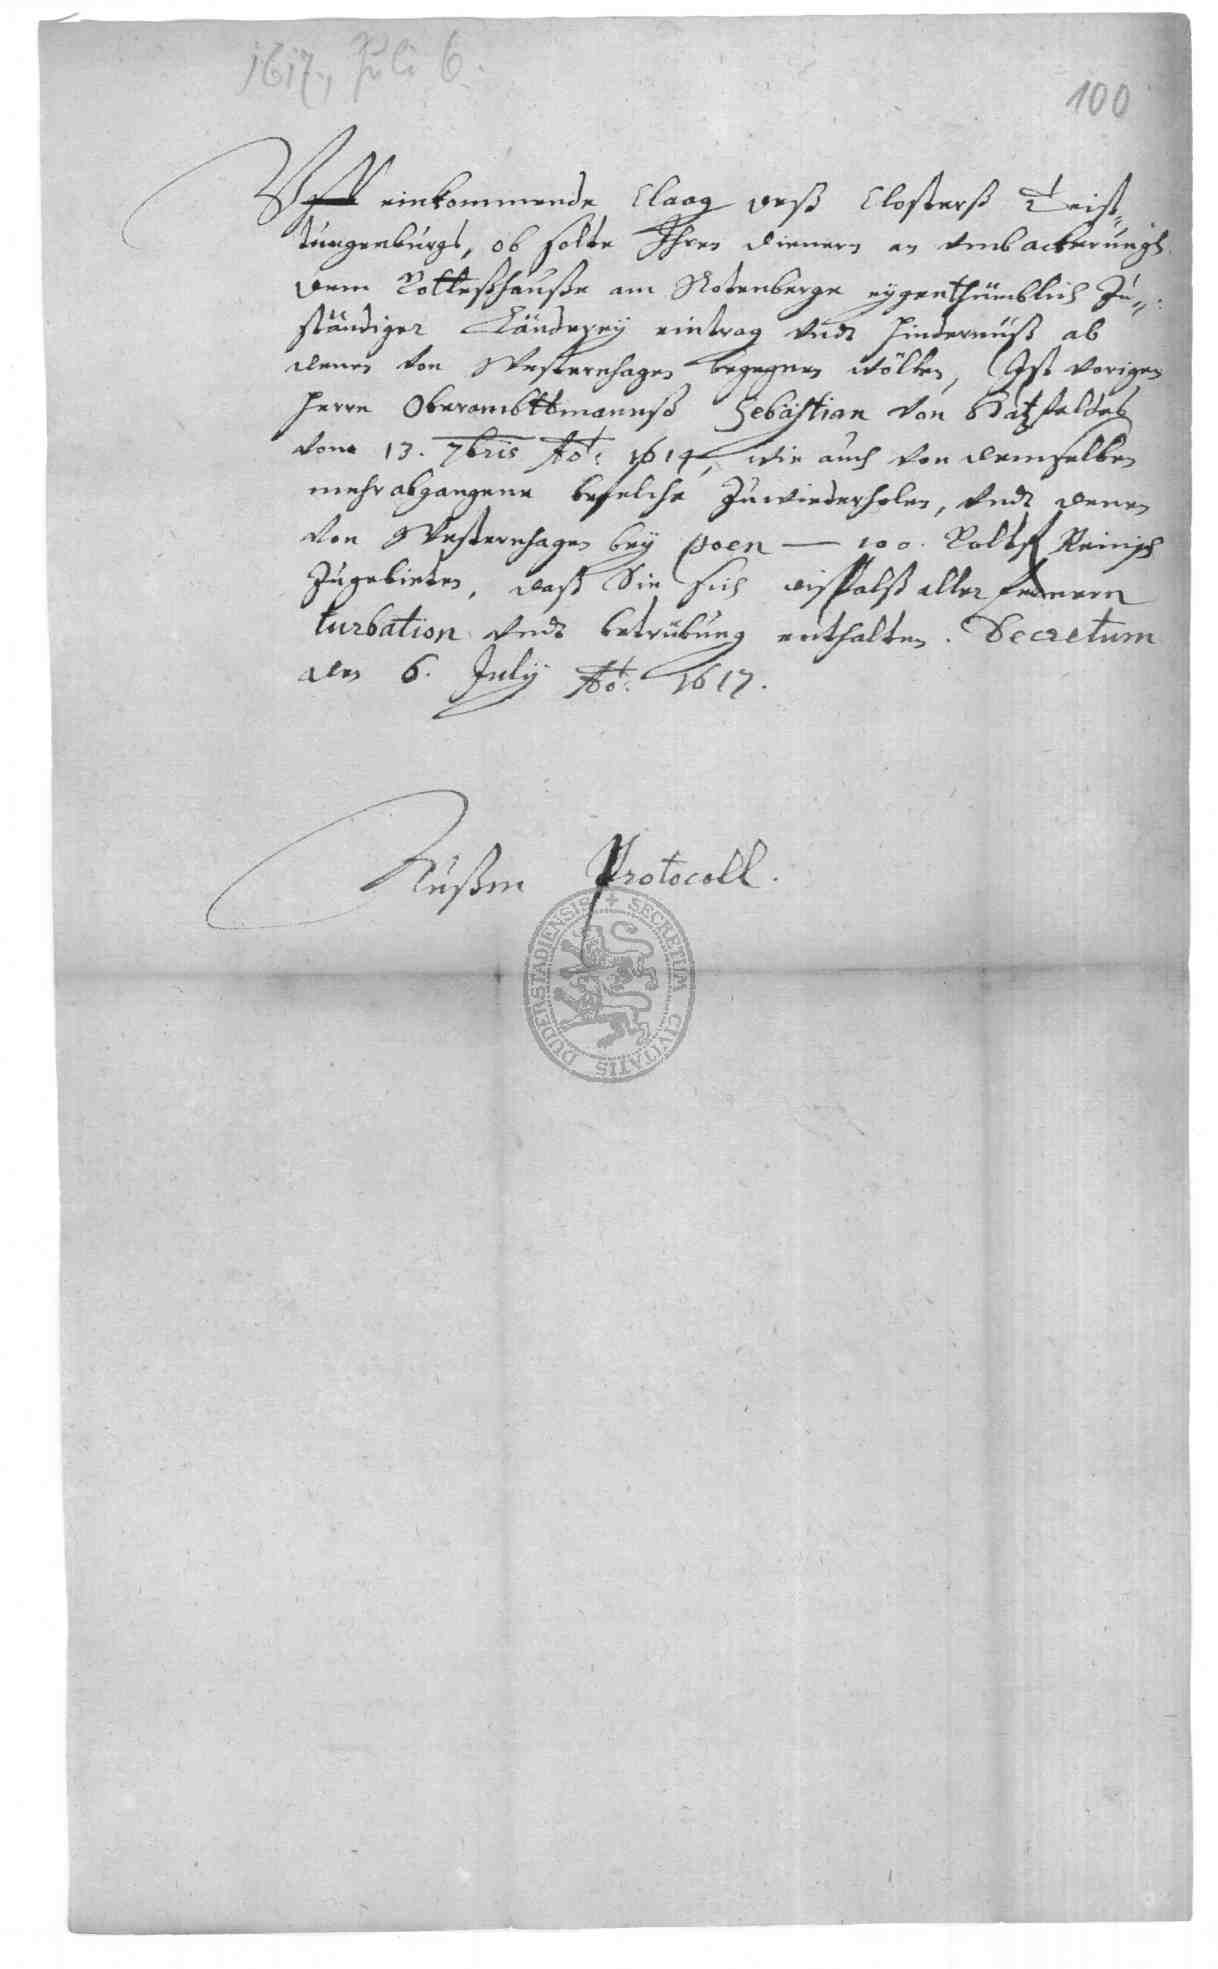 1617, Juli 6.
100
Vff einkommende Claag deß Closterß Teist„
tungenburgk, ob solte Ihren dienern an vmbackerungh
dem Gotteßhauße am Rotenberge eygenthümblich Zu„
ständiger Länderey eintrag vndt hindernuß ab
denen von Westernhagen begegnen wöllen, Ist vorigen
Herrn Oberambttmannß Sebastian von Hatzfeldts
vom 13. 7bris Ao: 1614, wie auch von demselben
mehr abgangene befelche Zuwiederholen, vndt denen
von Westernhagen bey poen — 100. Goltfl Reinisch
Zugebieten, daß Sie sich dißfalß aller fernern
turbation vndt betrübung enthalten. Decretum
den 6. July Ao: 1617.
Protocoll.
SECRETUM CIVITATIS DUDERSTADIENSIS